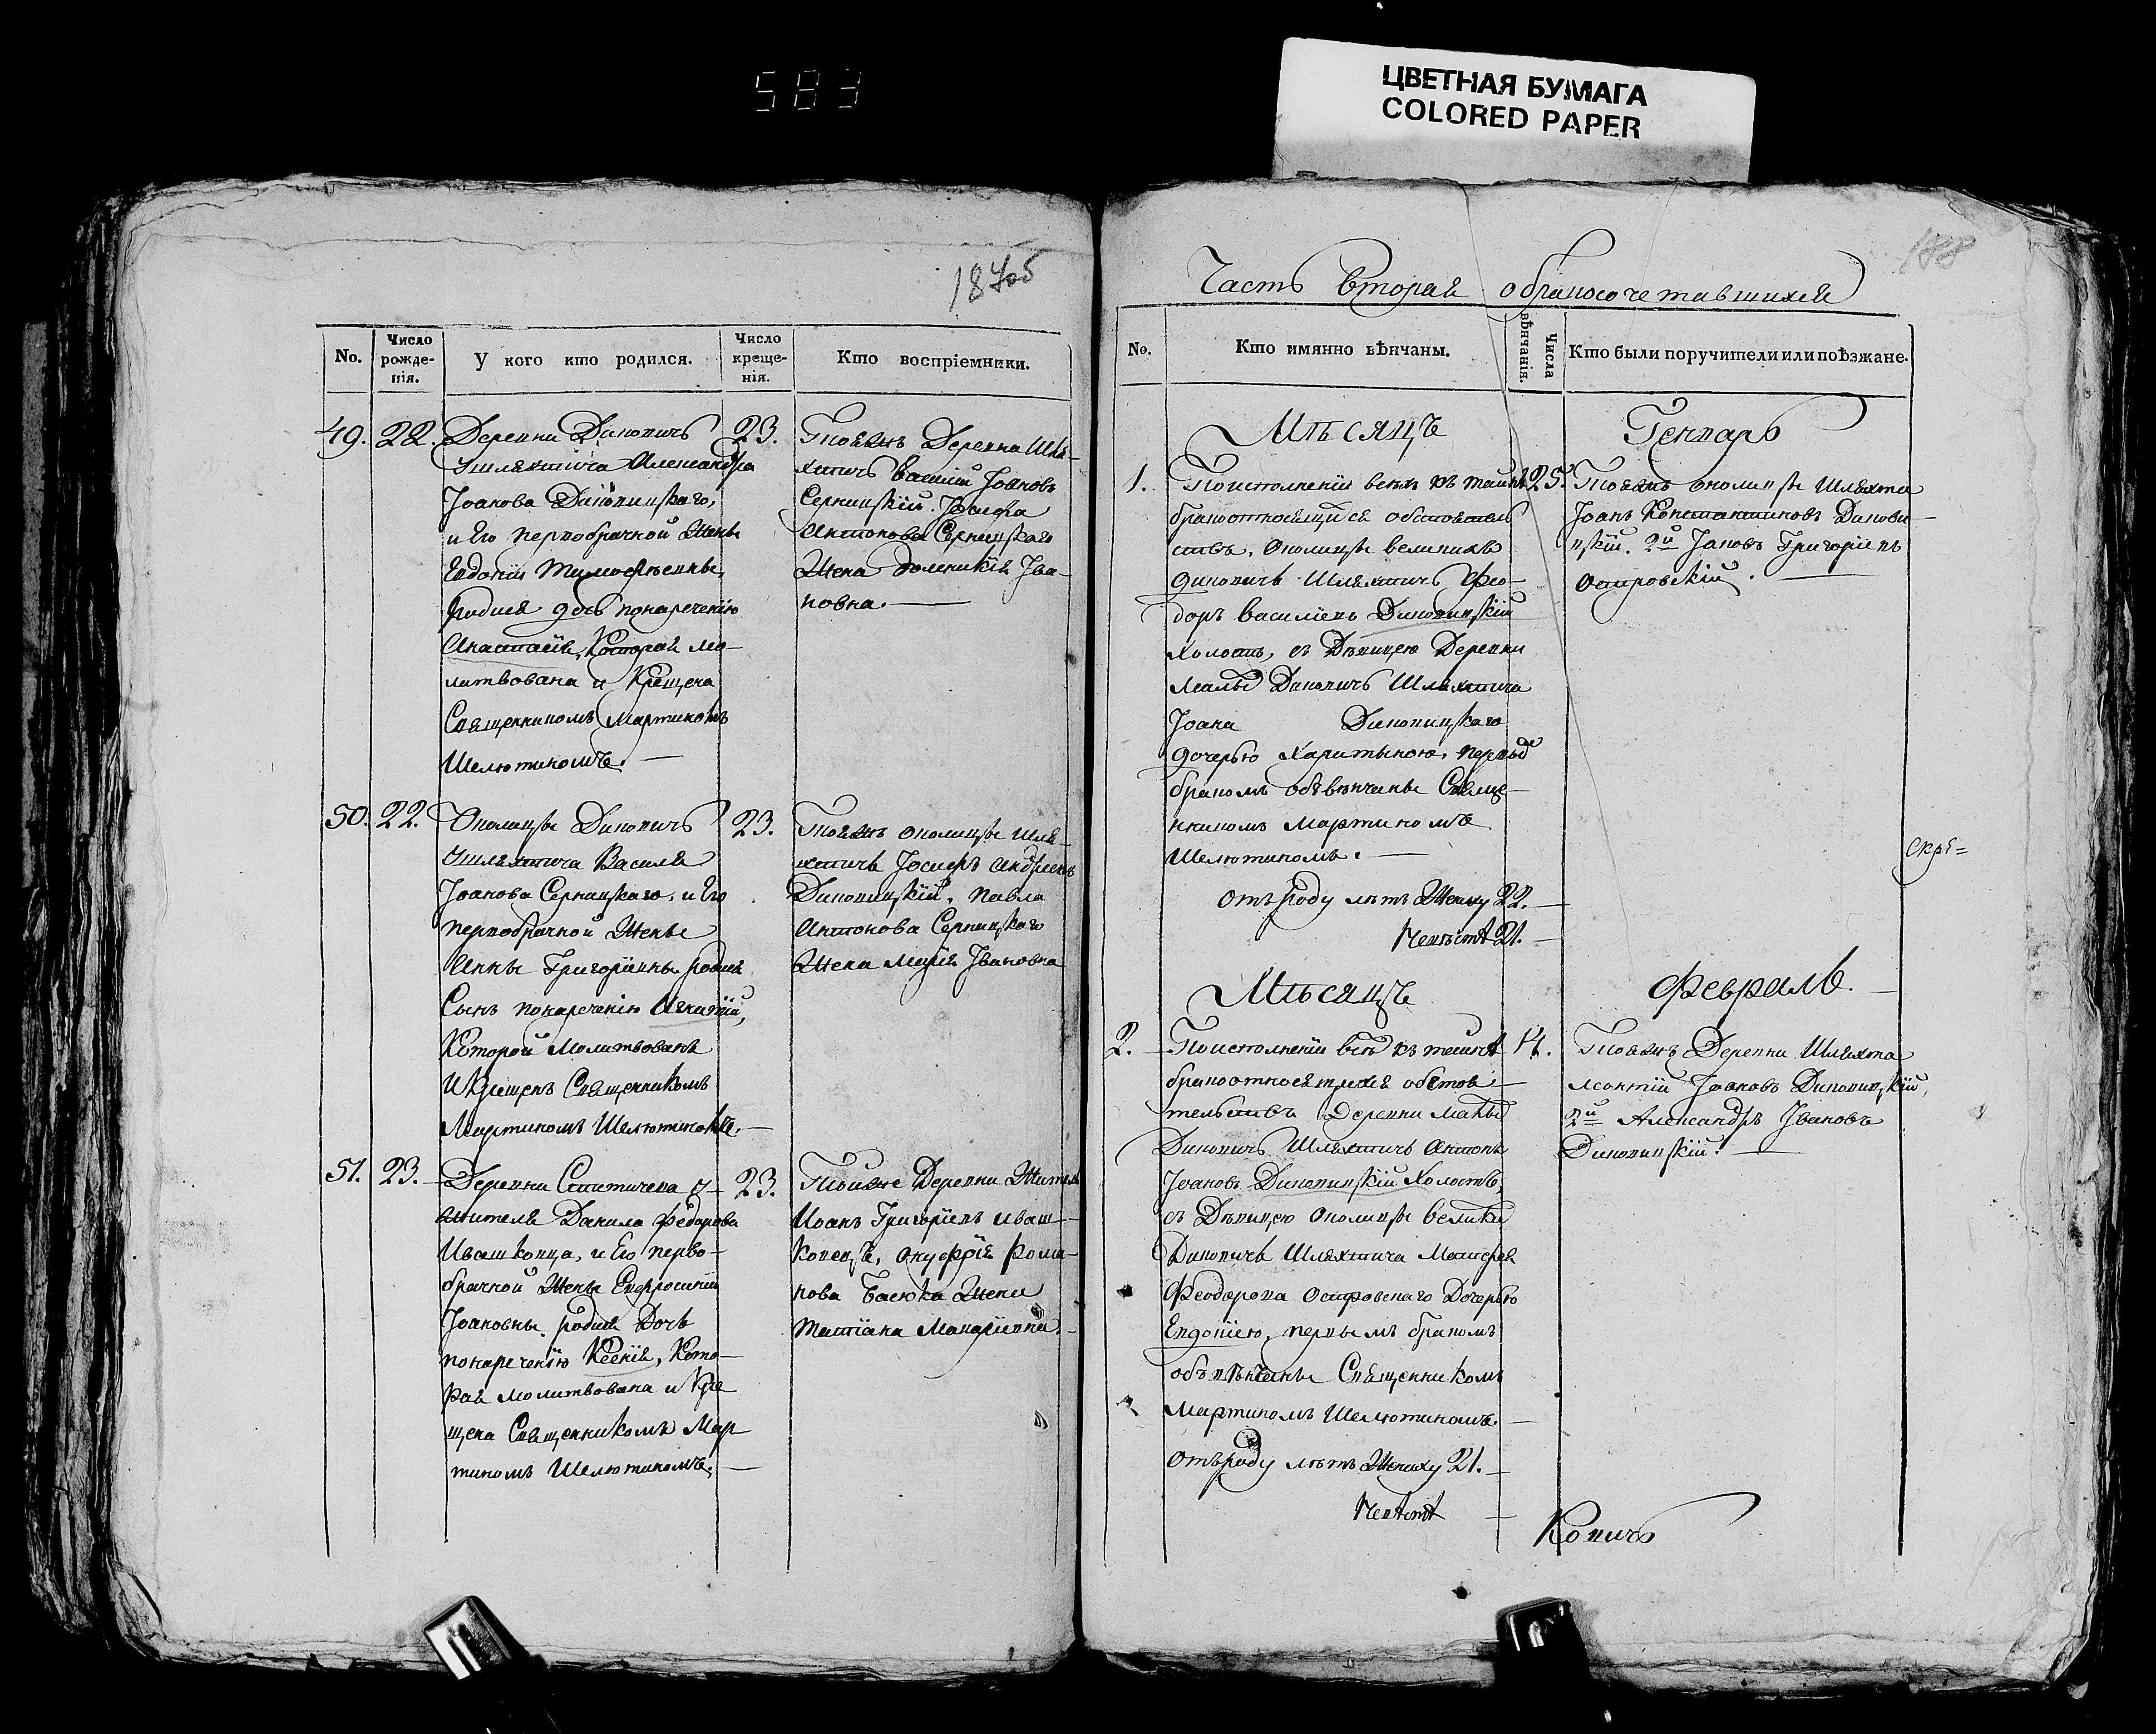 583
ЦВЕТНАЯ БУМАГА
COLORED PAPER
187об
No.
Число рожде-нія.
У кого кто родился.
Число креще-нія.
Кто воспріемники.
49. 22. Деревни Диковичъ 23.
Ушляхтича Александра
Іоанова Диковицкаго,
и Его первобрачной Жены
Евдокіи Тимофѣевны,
родися дочь понареченію
Анастасія, Которая мо-
литвована и Крещена
Священникомъ Мартиномъ
Шелютиномъ. —
Тоеяжъ Деревни Шля-
хтичъ Василій Іоановъ
Серницкій. Іосифа
Антонова Серницкаго
Жена Доменикія Іва-
новна. —
50. 22. Околицы Диковичъ 23.
Ушляхтича Василя
Іоанова Серницкаго, и Его
первобрачной Жены
Анны Григоріевны родися
Сынъ понареченію Игнатій,
Которой Молитвованъ
Икрещенъ Священникомъ
Мартиномъ Шелютиномъ. —
Тоеяжъ околицы Шля-
хтичъ Іосифъ Андреевъ
Диковицкій. Павла
Антонова Серницкаго
Жена Марія Івановна
51. 23. Деревни Ститичева у- 23.
Жителя Данила Федорова
Ивашковца, и Его перво-
брачной Жены Евфросиніи
Іоановны родися Дочь
понареченію Ксенія, Кото-
рая молитвована и Кре
щена Священникомъ Мар
тиномъ Шелютиномъ. —
Тойже Деревни Житель
Иоанъ Григоріевъ Иваш-
ковецъ. Онуфрія Рома-
нова Басюка Жена
Татіана Макаріевна. -
188
Часть вторая обракосочетавшихся
No.
Кто имянно вѣнчаны.
Числа вѣнчанія.
Кто были поручители или поѣзжане.
Мѣсяцъ Генварь
1. Поисполненіи всѣхъ къ тайнѣ 25.
бракотносящихся обстоятель
ствъ, Околицы великихъ
Диковичъ Шляхтичъ Фео-
доръ Василіевъ Диковицкій
холостъ, съ Дѣвицею Деревни
малыхъ Диковичъ Шляхтича
Іоана Диковицкаго
дочерью Харитыною, первымъ
бракомъ обвѣнчаны Свяще-
нникомъ Мартиномъ
Шелютиномъ. —
Отъ роду лѣтъ Жениху 22. —
Невѣстѣ 21. —
Тоеяжъ околицы Шляхта
Іоанъ Константиновъ Дикови-
цкій. 2й Іаковъ Григоріевъ
Островскій. —
скрѣ=
Мѣсяцъ Февраль. —
2. Поисполненіи всѣхъ къ тайнѣ 14.
бракотносящихся обстоя-
тельствъ Деревни малыхъ
Диковичъ Шляхтичъ Антонъ
Іоановъ Диковицкій Холостъ,
съ Дѣвицею Околицы великихъ
Диковичъ Шляхтича Матфея
Феодорова Островскаго Дочерью
Евдокіею, первымъ бракомъ
обвѣнчаны Священникомъ
Мартиномъ Шелютиномъ. —
Отъ роду лѣтъ Жениху 21. —
Невѣстѣ —
Тоеяжъ Деревни Шляхта
Леонтій Іоановъ Диковицкій,
2й Александръ Івановъ
Диковицкій. —